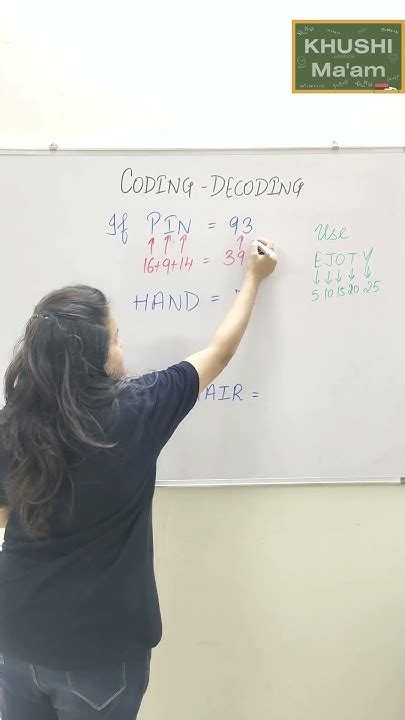 KHUSHI
Ma'am
CODING-DECODING
If PIN = 93
16+9+14 = 39
HAND =
AIR =
Use
EJOTY
5 10 15 20 25